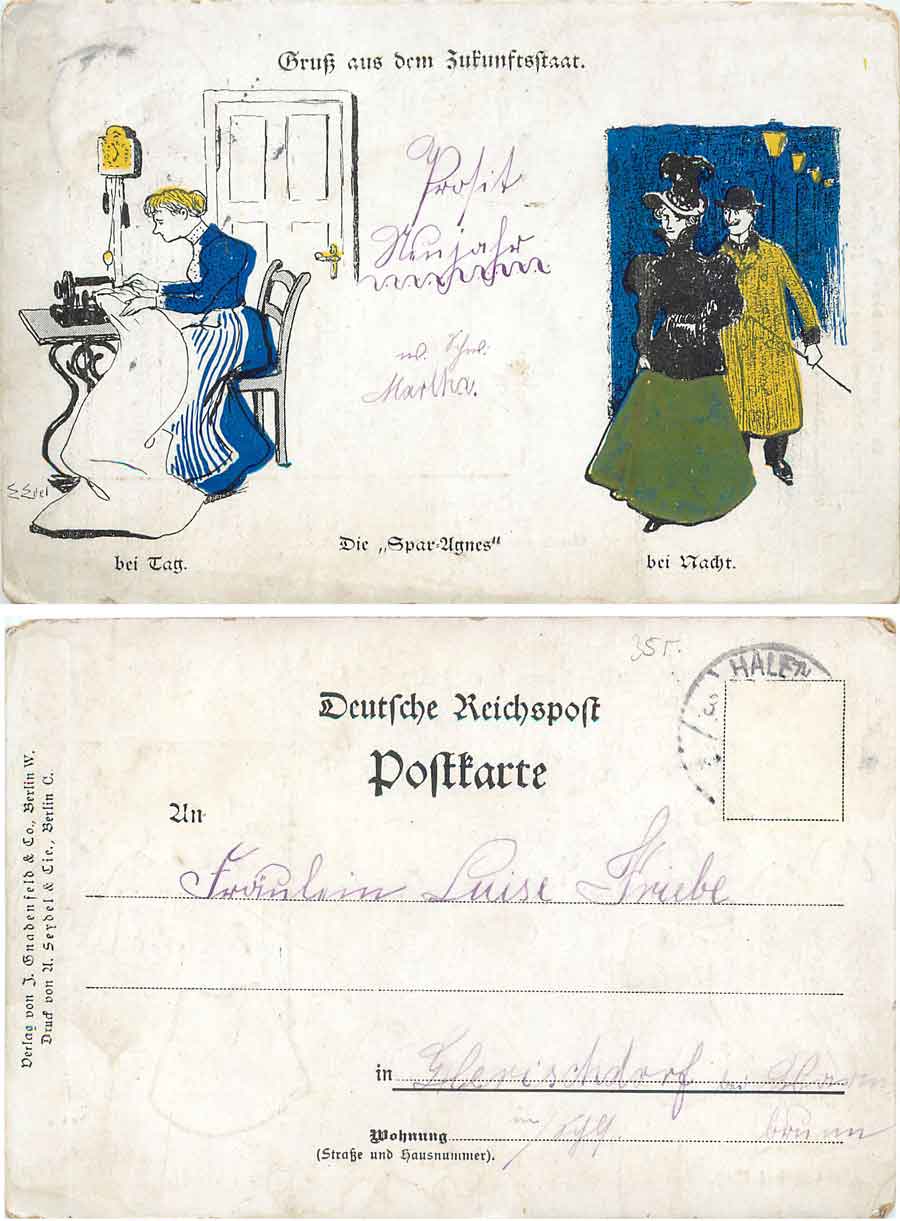 Gruß aus dem Zukunftsstaat.
Prosit
Neujahr
Martha.
E Edel
Die „Spar-Agnes"
bei Tag.
bei Nacht.
35 r.
HALE
Deutsche Reichspost
Postkarte
An
Fräulein Luise
in
Wohnung
(Straße und Hausnummer).
Verlag von J. Gnadenfeld & Co., Berlin W.
Druck von A. Seydel & Cie., Berlin C.